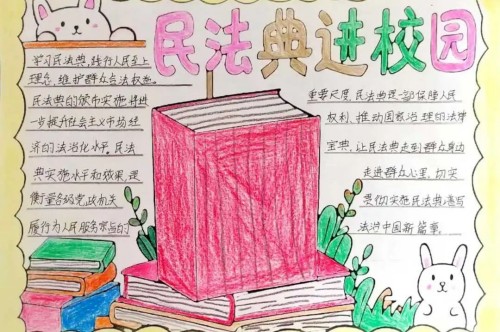 民法典进校园
学习民法典,践行人民至上
理念,维护群众合法权益。
民法典的颁布实施将进
一步提升社会主义市场经
济的法治化水平。民法
典实施水平和效果,是
衡量各级党政机关
履行为人民服务宗旨的
重要尺度,民法典是一部保障人民
权利、推动国家治理的法律
宝典,让民法典走到群众身边
走进群众心里,切实
贯彻实施民法典,谱写
法治中国新篇章。